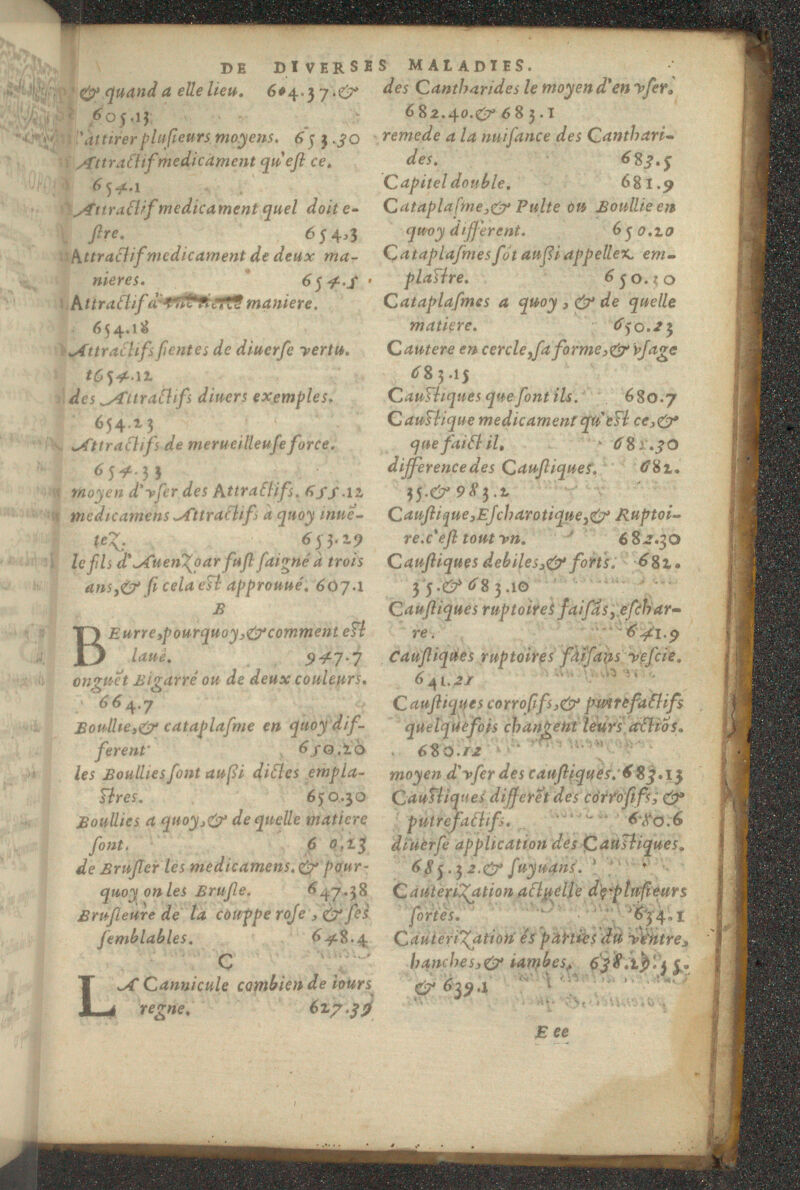 DE DIVERSES MALADIES.
& quand a elle lieu. 604.37.&
605.13
attirer plusieurs moyens. 653.30
Attractif medicament qu'est ce.
654.1
Attractif medicament quel doit e-
stre. 654.3
Attractif medicament de deux ma-
nieres. 654.5
Attractif d' maniere.
654.18
Attractifs fientes de diuerse vertu.
654.12
des Attractifs diuers exemples.
654.23
Attractifs de merueilleuse force.
654.33
moyen d'vser des Attractifs. 655.12
medicamens Attractifs a quoy inuê-
tez. 653.29
le fils d'Auenzoar fust saigné à trois
ans,& si cela est approuué. 607.1
B
BEurre,pourquoy,& comment est
laué. 947.7
onguêt Bigarré ou de deux couleurs.
664.7
Boullie,& cataplasme en quoy dif-
ferent 650.20
les Boullies font aussi dictes empla-
stres. 650.30
Boullies a quoy,& de quelle matiere
font. 6 0.23
de Brusler les medicamens.& pour-
quoy on les Brusle. 647.38
Brusleure de la couppe rose , & ses
semblables. 648.4
C
LA Cannicule combien de iours
regne. 627.39
des Cantharides le moyen d'en vser.
682.40.& 683.1
remede a la nuisance des Canthari-
des. 683.5
Capitel double. 681.9
Cataplasme,& Pulte ou Boullie en
quoy different. 650.20
Cataplasmes sôt aussi appellez em-
plastre. 650.30
Cataplasmes a quoy , & de quelle
matiere. 650.23
Cautere en cercle,sa forme,& vsage
683.15
Caustiques que font ils. 680.7
Caustique medicament qu'est ce,&
que faict il. 681.30
difference des Caustiques. 682.
35.& 983.2
Caustique,Escharotique,& Ruptoi-
re.c'est tout vn. 682.30
Caustiques debiles,& forts. 682.
35.& 683.10
Caustiques ruptoires faisâs, eschar-
re. 641.9
Caustiques ruptoires faisans vescie.
641.21
Caustiques corrosifs,& putrefactifs
quelquefois changent leurs actiôs.
680.12
moyen d'vser des caustiques. 683.13
Caustiques differêt des corrosifs, &
putrefactifs. 680.6
diuerse application des Caustiques.
685.32.& suyuans.
Cauterization actuelle de plusieurs
sortes. 634.1
Cauterization es parties du ventre,
hanches,& iambes. 638.29.35.
& 639.1
E ee